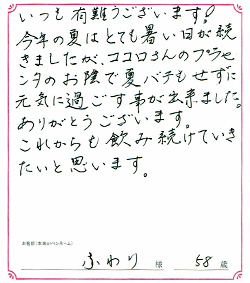 いつも有難うございます!
今年の夏はとても暑い日が続
きましたが、ココロさんのプラセ
ンタのお陰で夏バテもせずに
元気に過ごす事が出来ました。
ありがとうございます。
これからも飲み続けていき
たいと思います。
お名前(本名orペンネーム)
ふわり 様 58 歳